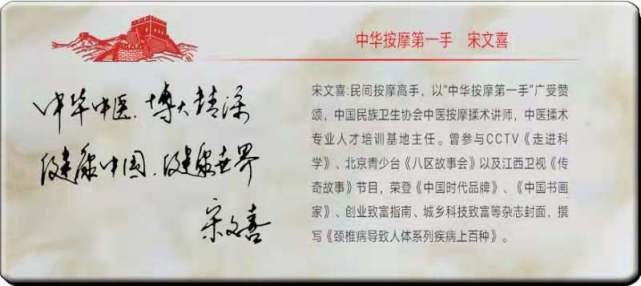 中华按摩第一手 宋文喜
中华中医，博大精深
健康中国，健康世界
宋文喜
宋文喜:民间按摩高手，以“中华按摩第一手”广受赞
颂，中国民族卫生协会中医按摩揉术讲师，中医揉术
专业人才培训基地主任。曾参与CCTV《走进科
学》、北京青少台《八区故事会》以及江西卫视《传
奇故事》节目，荣登《中国时代品牌》、《中国书画
家》、创业致富指南、城乡科技致富等杂志封面，撰
写《颈椎病导致人体系列疾病上百种》。